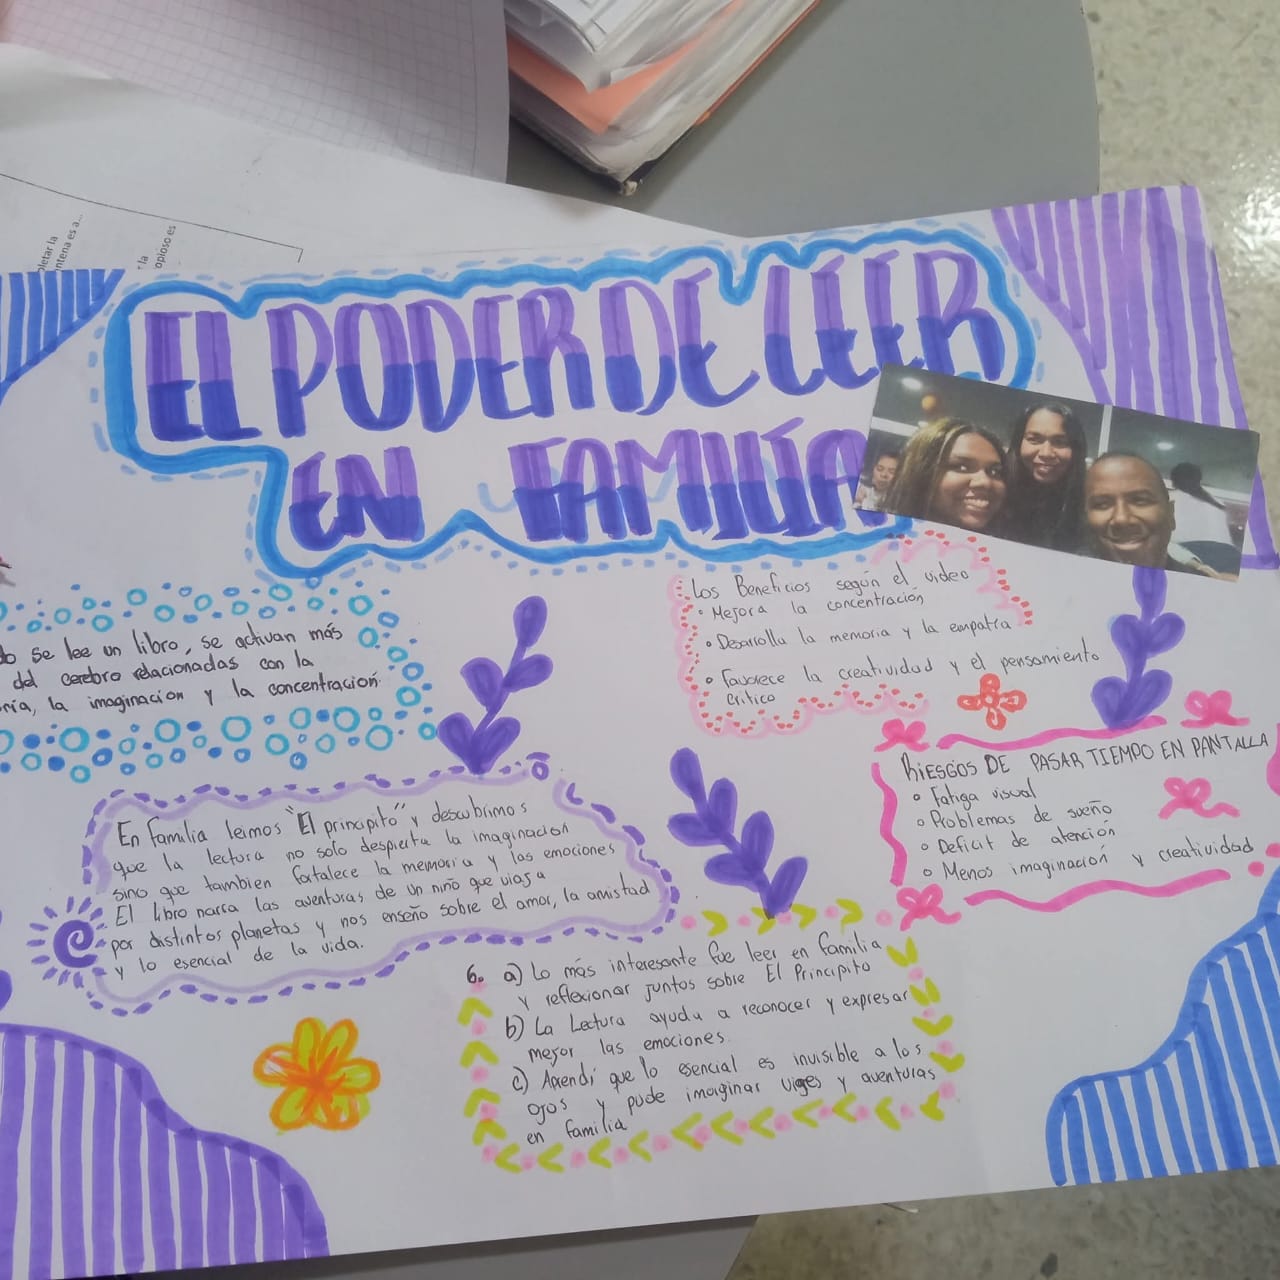 EL PODER DE LEER
EN FAMILIA
se lee un libro, se activan más
del cerebro relacionadas con la
la imaginacion y la concentración
Los Beneficios según el video
• Mejora la concentración
• Desarolla la memoria y la empatía
• Favorece la creatividad y el pensamiento
Crítico
RIESGOS DE PASAR TIEMPO EN PANTALLA
o Fatiga visual
o Problemas de sueño
o Deficit de atención
o Menos imaginación y creatividad
En Familia leimos "El principito" y descubrimos
que la lectura no solo despierta la imaginacion
sino que tambien fortalece la memoria y las emociones
El libro narra las aventuras de un niño que viaja
por distintos planetas y nos enseño sobre el amor, la amistad
y lo esencial de la vida.
6. a) Lo más interesante fue leer en familia
y reflexionar juntos sobre El Principito
b) La Lectura ayuda a reconocer y expresar
mejor las emociones.
c) Aprendí que lo esencial es invisible a los
ojos y pude imaginar viges y aventuras
en familia